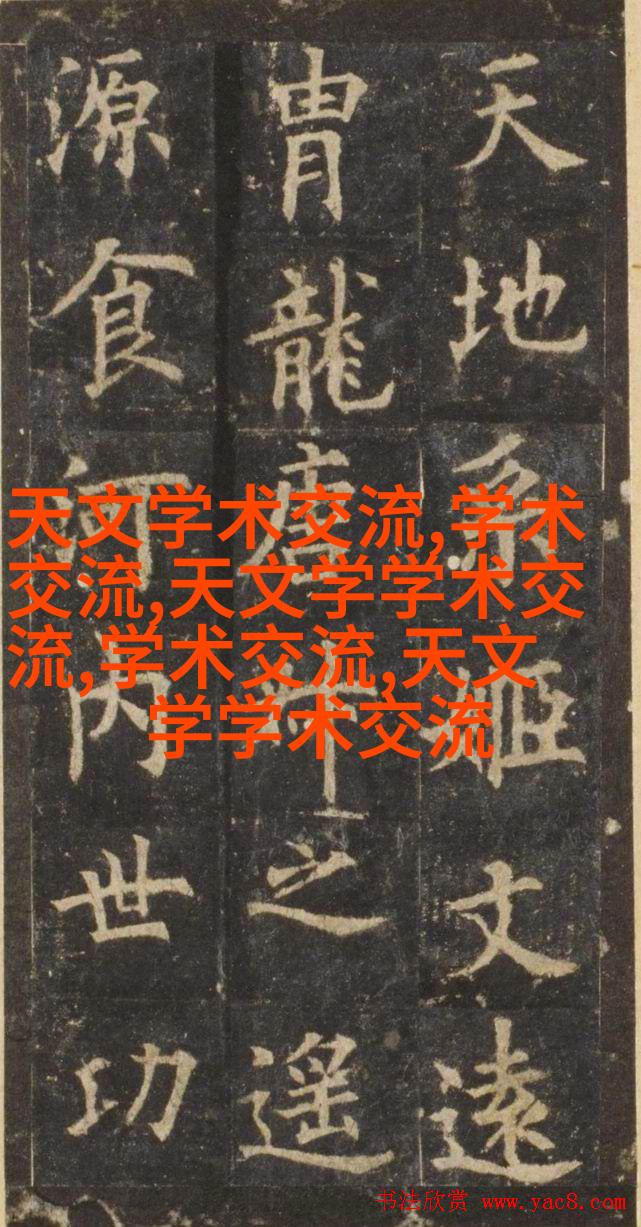 天地系姬文遠
胄龍唐之遥
源食河内世功
天文学术交流,学术
交流,天文学学术交
流,学术交流,天文
学学术交流
书法欣赏 www.yac8.com